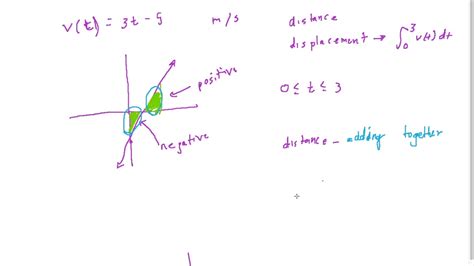 v(t) = 3t - 5 m/s
distance
displacement → ∫₀³ v(t) dt
positive
0 ≤ t ≤ 3
negative
distance - adding together